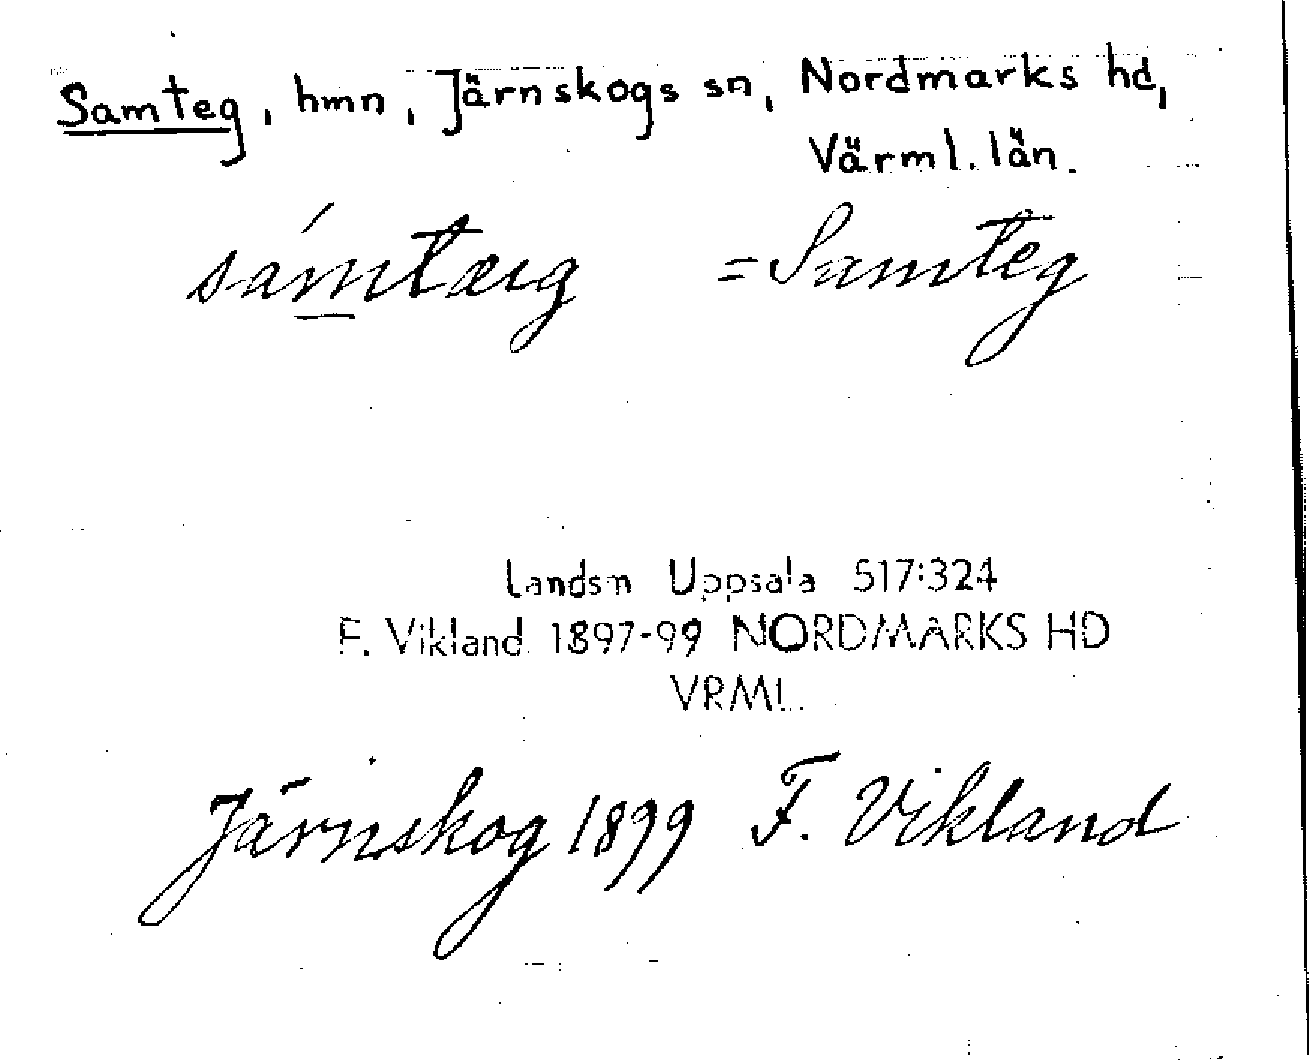 Samteg, hmn, Järnskogs sn, Nordmarks hd,
Värml. län.
sámtæig = Samteg
Landsm Uppsala 517:324
F. Vikland 1897-99 NORDMARKS HD
VRML.
Järnskog 1899 F. Vikland